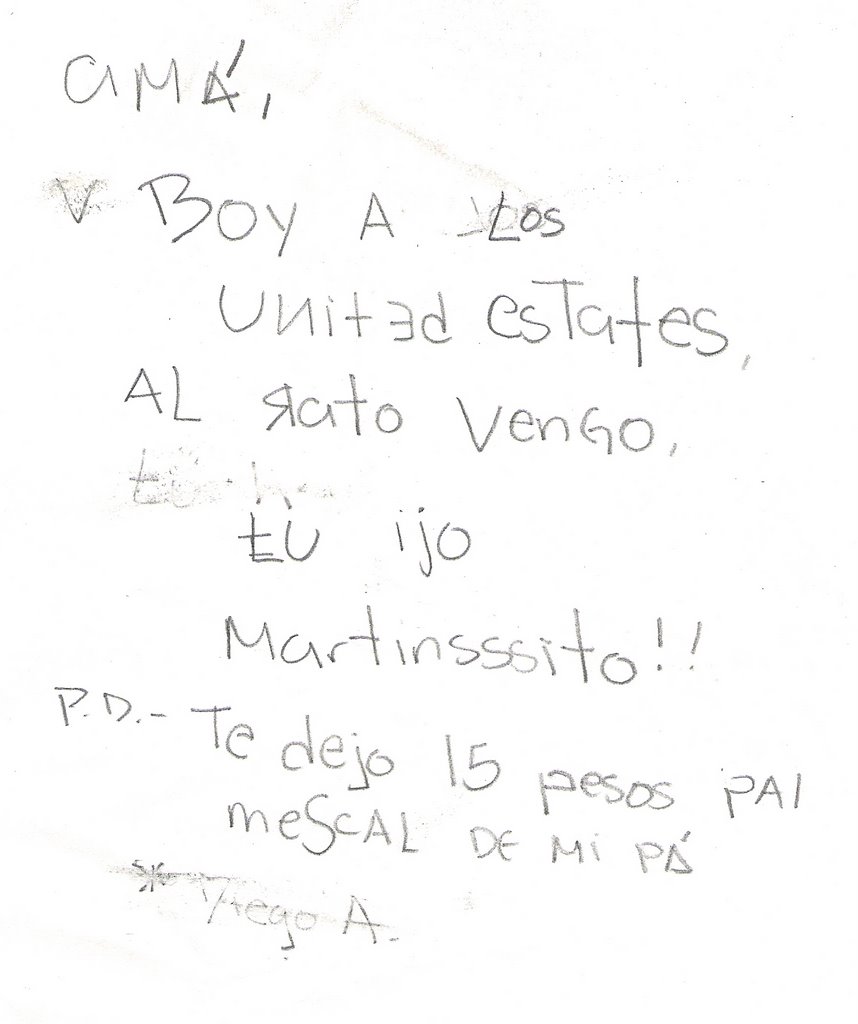 AMÁ,
V BOY A Los
UNitEd esTates,
AL Rato VenGO,
tÚ ijo
Martinsssito!!
P.D.- Te dejo 15 pesos PAI
meScAL DE Mi PÁ